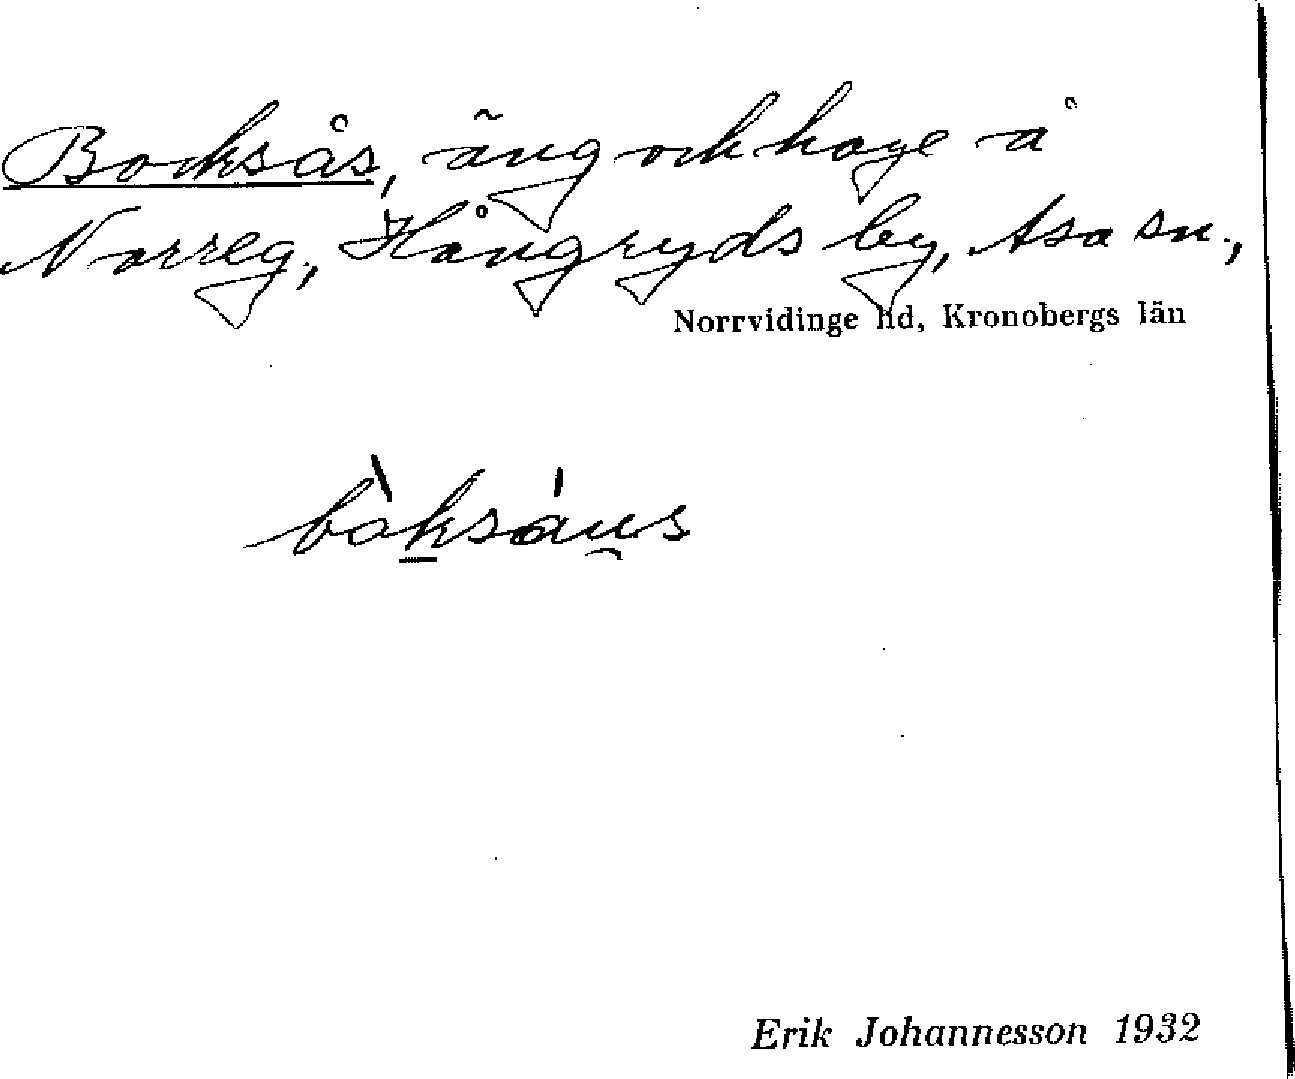 Bocksås, äng och hage å
Norreg., Hångryds by, Asa sn.,
Norrvidinge hd, Kronobergs län
bòksáus
Erik Johannesson 1932